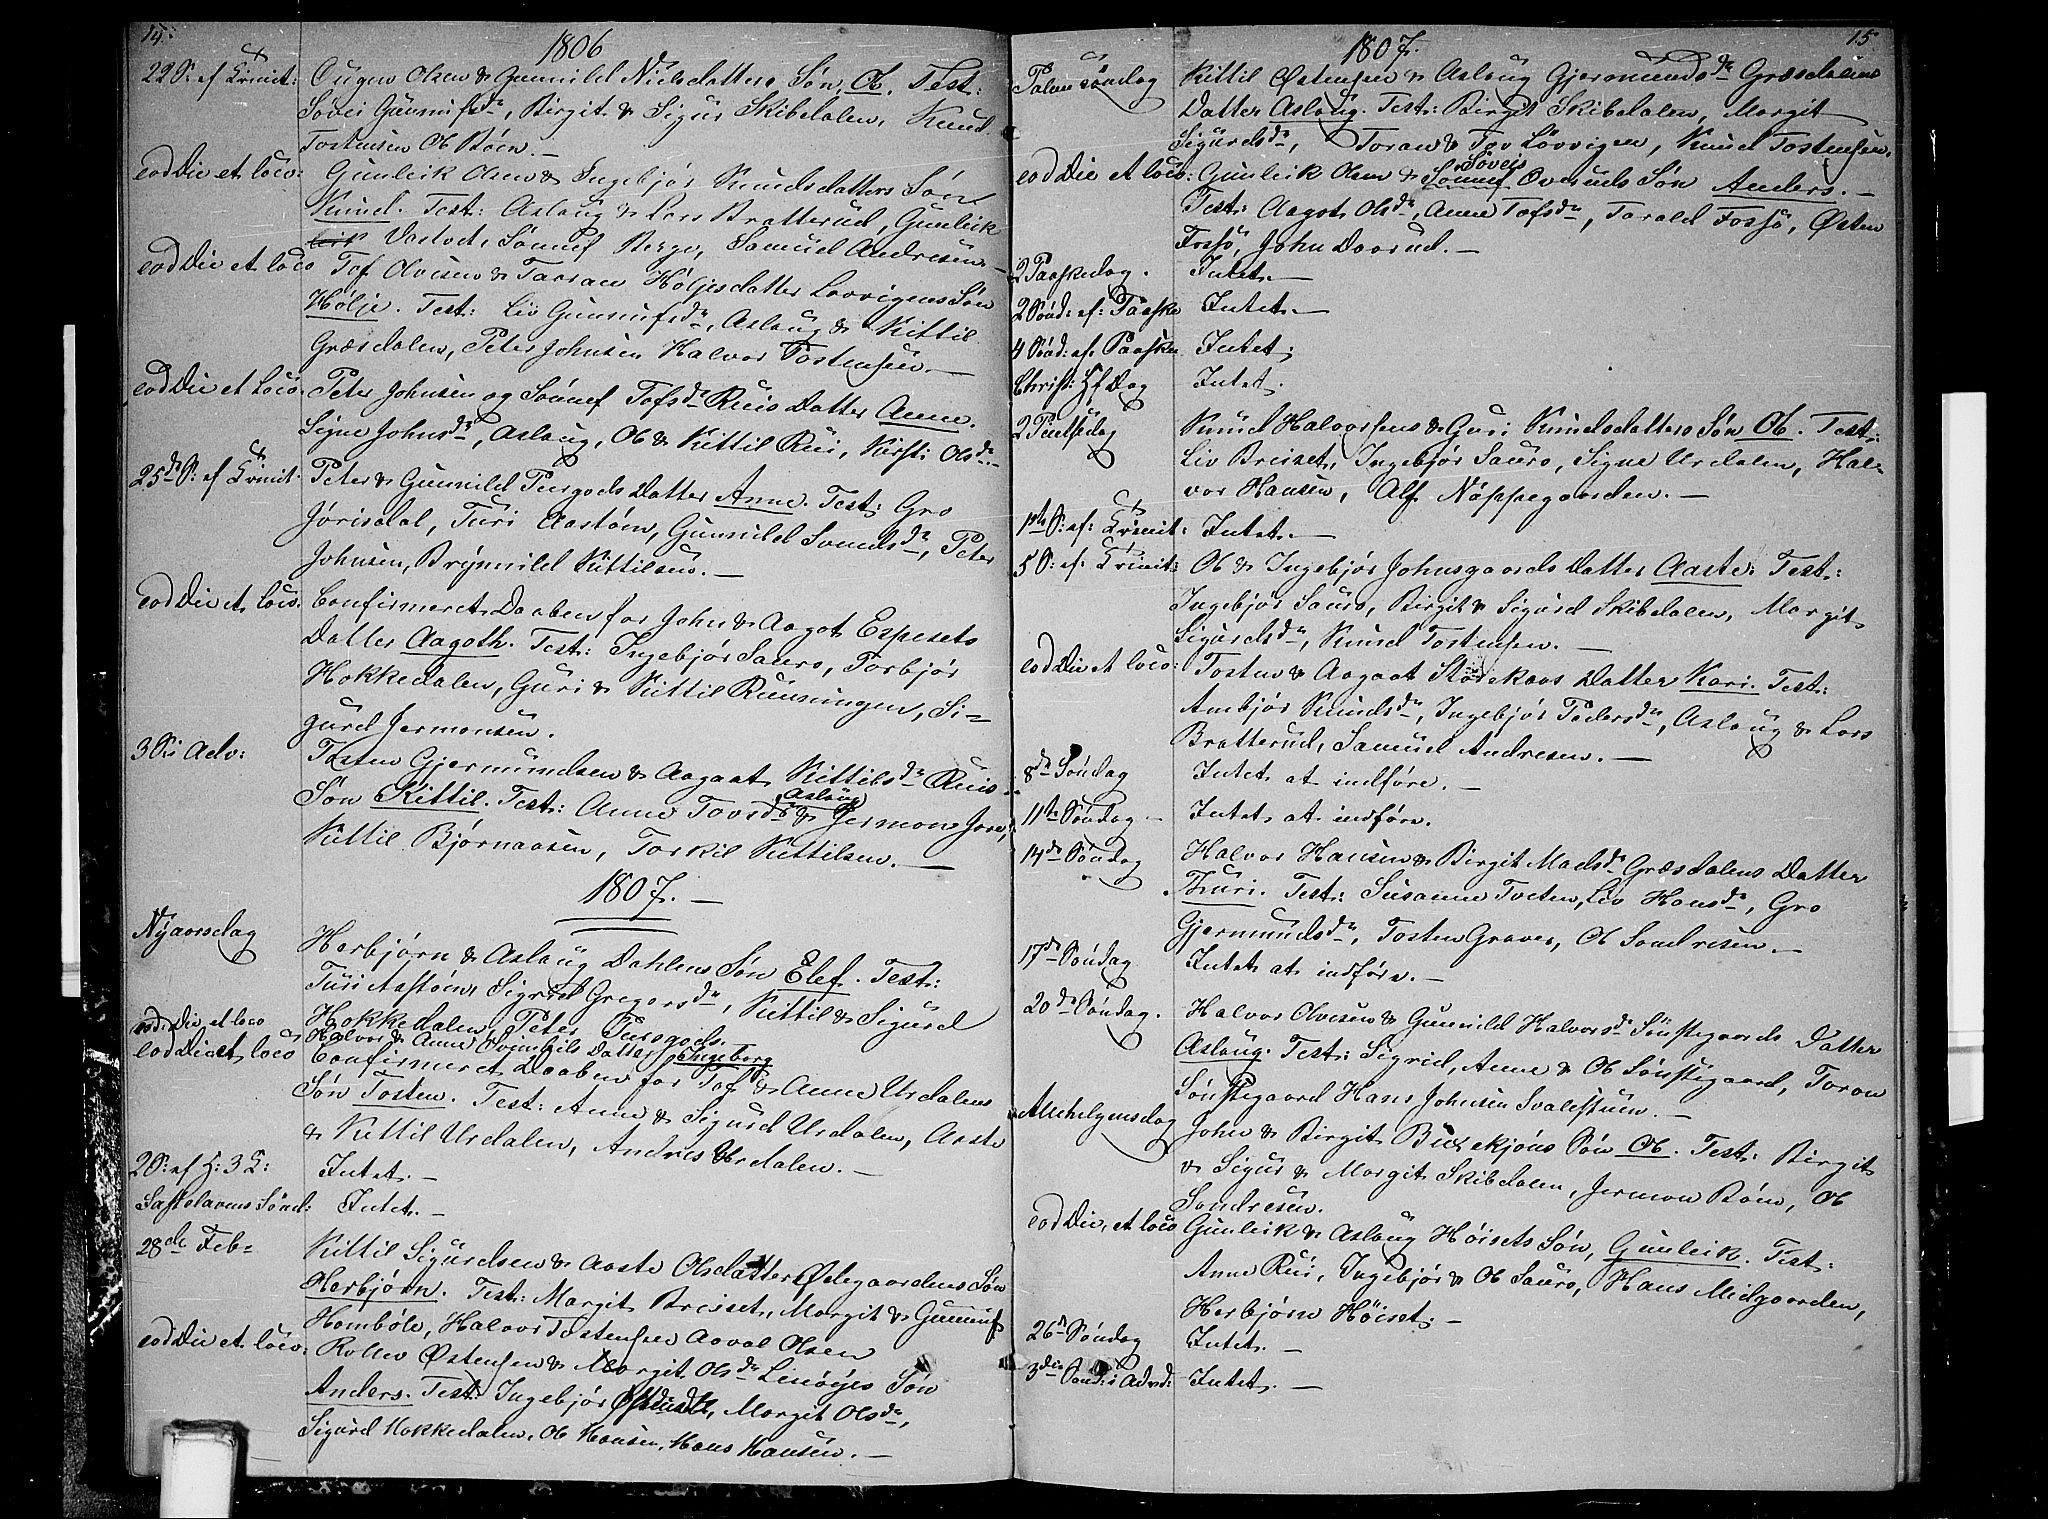 14.
1806
22 S: af Trinit: Ougen Olsen & Gunnild Nielsdatters Søn, Ob. Test:
Søvei Gunnufsdr, Birgit & Sigur Skibdalen, Knud
Tostensen Ob Böen.—
eod Die et loco: Gunleik Olsen & Ingebjør Knudsdatters Søn
Knud. Test: Aslaug & Lars Bratterud, Gunleik
Vastvet, Sönnef Berge, Samuel Andresen—
eod Die et loco Tof Olvesen & Taaran Høljesdatter Lovvigens Søn
Hölje. Test: Liv Gunnufsdr, Aslaug & Kittil
Græsdalen, Peter Johnsen Halvor Tostensen.—
eod Die et Loco. Peter Johnsen og Sönnef Tofsdr Ruis Datter Anne.
Signe Johnsdr, Aslaug, Ob & Kittil Rui, Kirsti Olsdr.—
25de S: af Trinit. Peter & Gunnild Purgods Datter Anne. Test: Gro
Jørisdal, Turi Aastön, Gunnild Svendsdr, Peter
Johnsen, Brynnild Kittilsen.—
eod Die et loco. Confirmeret Daaben for John & Aagot Espesets
Datter Aagoth. Test: Ingebjør Sauro, Torbjør
Hokkedalen, Guri & Kittil Runningen, Si=
gurd Jermonsen.
3 S: i Adv: Tosten Gjermundsen & Aagaat Kittilsdr Ruis
Aslaug
Søn Kittil. Test: Anne Tovsdr & Jermon Jore,
Kittil Bjørnaasen, Torkil Kittilsen.—
1807.—
Nyaarsdag Herbjørn & Aslaug Dahlens Søn Elef. Test:
Turi Aastön, Sigrid Gregorsdr, Kittil & Sigurd
Hokkedalen, Peter Purgods.
eod: Die et loco Halvor & Anne Svinhüls Datter Ingeborg
eod Die et loco Confirmeret Daaben for Tof & Anne Urdalens
Søn Tosten. Test: Anne & Sigurd Urdalen, Aaste
& Kittil Urdalen, Andres Urdalen.—
2 S: af H: 3 K: Intet.—
Fastelavens Sönd: Intet.—
28de Feb= Kittil Sigurdsen & Aaste Olsdatter Ølegaardens Søn
Herbjørn. Test: Margit Breiset, Margit & Gunnuf
Hambòle, Halvor Tostensen Aaval Olsen
eod Die et loco. Rollev Østensen & Margit Olsdr Linøyes Søn
Anders. Test: Ingebjør, Margit Olsdr,
Sigurd Hokkedalen, Ob Hansen, Hans Hansen.—
15
1807.
Palme søndag Kittil Østensen & Aslaug Gjermundsdr Græsdalens
Datter Aslaug. Test: Birgit Skibdalen, Margit
Sigurdsdr, Toran & Tov Lovvigen, Knud Tostensen.
Søveis
eod Die et loco: Gunleik Olsen & Sønnef Overuds Søn Anders.—
Test: Aagot Olsdr, Anne Tofsdr, Torald Fossø, Østen
Fossø, John Daarud.—
2 Paaskedag. Intet.—
2 Sönd: af: Paaske Intet.—
4 Sönd: af. Paaske Intet.
Christ: Hf Dag Intet.
2 Pentsedag Knud Halvorsens & Guri Knudsdatters Søn Ob. Test:
Liv Breiset, Ingebjør Sauro, Signe Urdalen, Hal=
vor Hansen, Alf Näppegaarden.—
1ste S: af: Trinit: Intet.—
5 S: af: Trinit: Ob & Ingebjør Johnsgaards Datter Aaste. Test:
Ingebjør Sauro, Birgit & Sigurd Skibdalen, Margit
Sigurdsdr, Knud Tostensen.—
eod Die et loco: Tosten & Aagaat Stövekaas Datter Kari. Test:
Ambjør Knudsdr, Ingebjør Pedersdr, Aslaug & Lars
Bratterud, Samuel Andresen.—
8de Søndag Intet at indføre.—
11te Søndag— Intet at indføre.
14de Søndag Halvor Hansen & Birgit Madsdr Græsdalens Datter
Thuri. Test: Susanne Tveten, Liv Hansdr, Gro
Gjermundsdr, Tosten Graver, Ob Sondresen.—
17de Søndag Intet at indføre.—
20de Søndag. Halvor Olvesen & Gunnild Halvorsdr Sönstegaards Datter
Aslaug. Test: Sigrid, Anne & Ob Sönstegaard, Toron
Sönstegaard Hans Johnsen Svalestuen.—
Allehelgensdag John & Birgit Buxekjöns Søn Ob. Test: Birgit
& Sigur & Margit Skibdalen, Jermon Böen, Ob
Sondresen.
eod Die, et loco Gunleik & Aslaug Høisets Søn, Gunleik. Test:
Anne Rui, Ingebjør & Ob Sauro, Hans Midgaarden,
Herbjørn Høiset.—
26de Søndag Intet.—
3die Sönd: i Advd: Intet.—